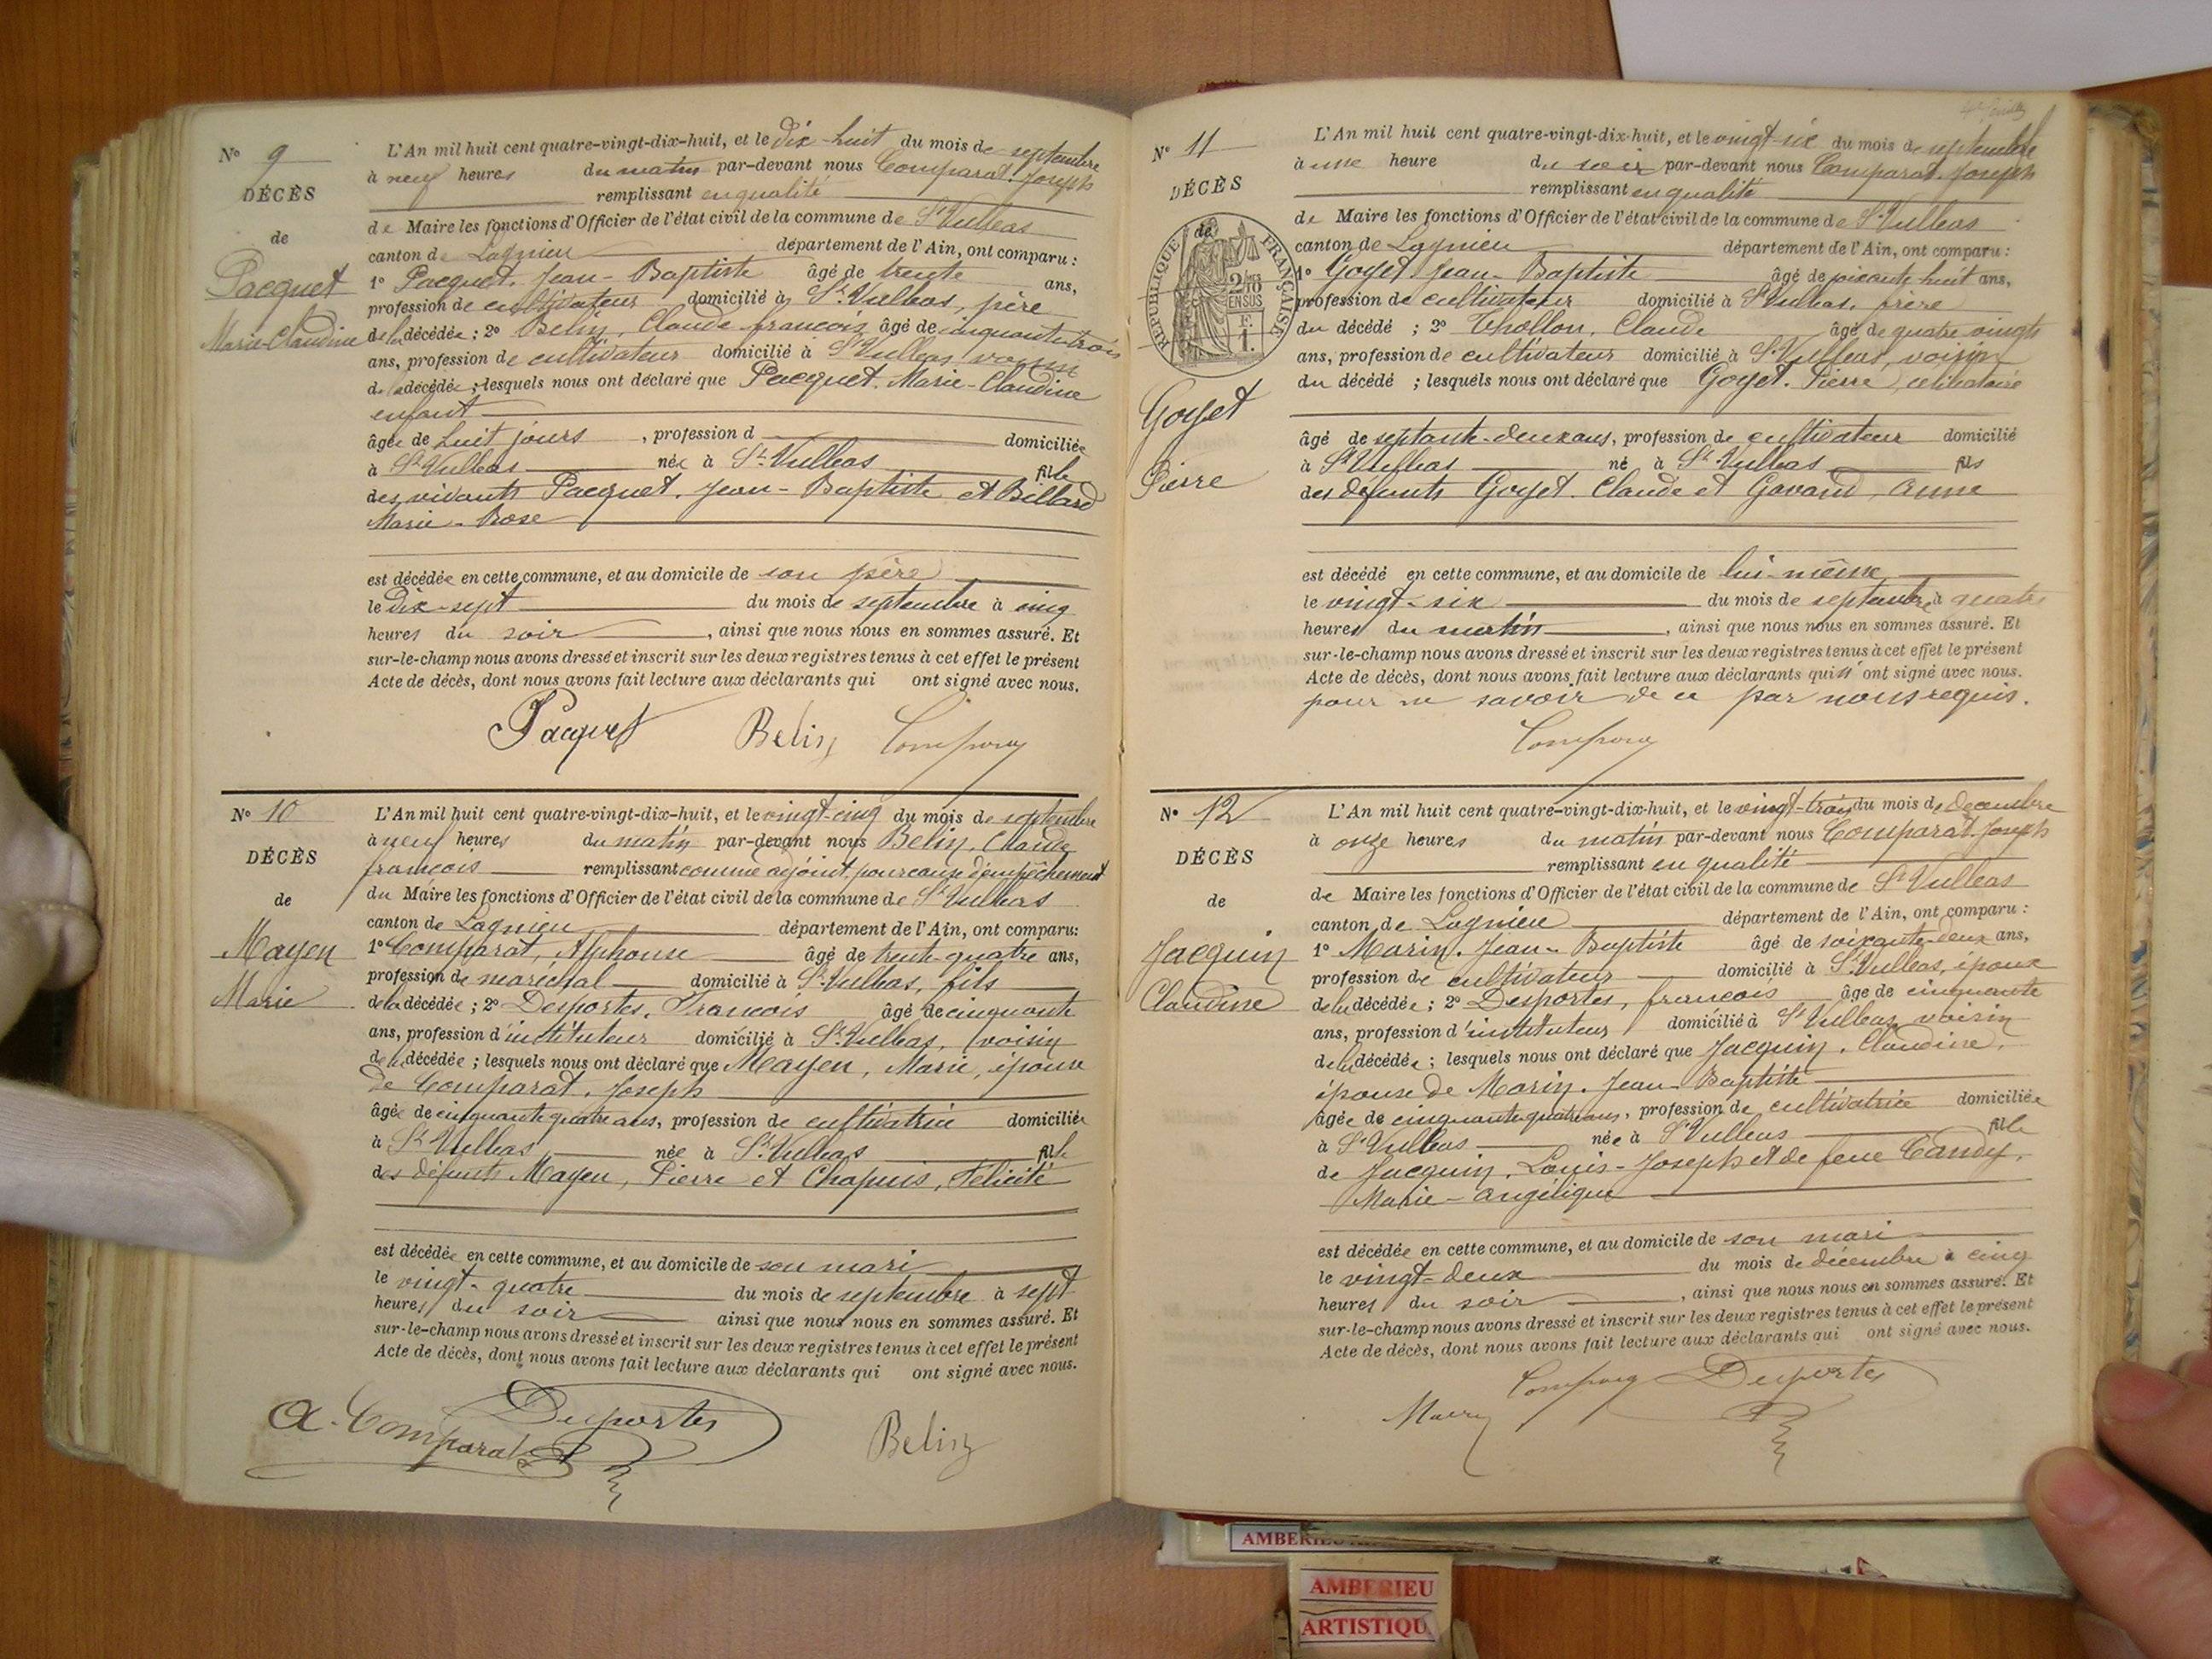 N° 9
DÉCÈS
de
Pacquet
Marie-Claudine
L'An mil huit cent quatre-vingt-dix-huit, et le dix-huit du mois de septembre
à neuf heures du matin par-devant nous Comparat. Joseph
remplissant en qualité
de Maire les fonctions d'Officier de l'état civil de la commune de St Vulbas
canton de Lagnieu département de l'Ain, ont comparu :
1° Pacquet. Jean-Baptiste âgé de trente ans,
profession de cultivateur domicilié à St Vulbas, père
de la décédée ; 2° Belin, Claude françois âgé de cinquante trois
ans, profession de cultivateur domicilié à St Vulbas voisin
de la décédée ; lesquels nous ont déclaré que Pacquet. Marie-Claudine
enfant
âgée de huit jours , profession d domiciliée
à St Vulbas née à St Vulbas fille
des vivants Pacquet. Jean-Baptiste et Billard
Marie-Rose
est décédée en cette commune, et au domicile de son père
le dix-sept du mois de septembre à cinq
heures du soir , ainsi que nous nous en sommes assuré. Et
sur-le-champ nous avons dressé et inscrit sur les deux registres tenus à cet effet le présent
Acte de décès, dont nous avons fait lecture aux déclarants qui ont signé avec nous.
Pacquet Belin
N° 10
DÉCÈS
de
Mayen
Marie
L'An mil huit cent quatre-vingt-dix-huit, et le vingt-cinq du mois de septembre
à neuf heures du matin par-devant nous Belin. Claude
françois remplissant comme adjoint, pour cause d'empêchement
du Maire les fonctions d'Officier de l'état civil de la commune de St Vulbas
canton de Lagnieu département de l'Ain, ont comparu:
1° Comparat, Alphonse âgé de trente-quatre ans,
profession de maréchal domicilié à St Vulbas, fils
de la décédée ; 2° Desportes. François âgé de cinquante
ans, profession d'instituteur domicilié à St Vulbas, voisin
de la décédée ; lesquels nous ont déclaré que Mayen, Marie, épouse
de Comparat. Joseph
âgée de cinquante quatre ans, profession de cultivatrice domiciliée
à St Vulbas née à St Vulbas fille
des défunts Mayen, Pierre et Chapuis, Félicité
est décédée en cette commune, et au domicile de son mari
le vingt-quatre du mois de septembre à sept
heures du soir ainsi que nous nous en sommes assuré. Et
sur-le-champ nous avons dressé et inscrit sur les deux registres tenus à cet effet le présent
Acte de décès, dont nous avons fait lecture aux déclarants qui ont signé avec nous.
A. Comparat Desportes Belin
N° 11
DÉCÈS
de
RÉPUBLIQUE FRANÇAISE
2/10
EN SUS
Goyet
Pierre
L'An mil huit cent quatre-vingt-dix-huit, et le vingt-six du mois de septembre
à une heure du soir par-devant nous Comparat. Joseph
remplissant en qualité
de Maire les fonctions d'Officier de l'état civil de la commune de St Vulbas
canton de Lagnieu département de l'Ain, ont comparu :
1° Goyet. Jean-Baptiste âgé de soixante huit ans,
profession de cultivateur domicilié à St Vulbas. frère
du décédé ; 2° Thollon, Claude âgé de quatre vingts
ans, profession de cultivateur domicilié à St Vulbas, voisin
du décédé ; lesquels nous ont déclaré que Goyet. Pierre, célibataire
âgé de septante-deux ans, profession de cultivateur domicilié
à St Vulbas né à St Vulbas fils
des défunts Goyet. Claude et Gavand, Anne
est décédé en cette commune, et au domicile de lui-même
le vingt-six du mois de septembre à quatre
heures du matin , ainsi que nous nous en sommes assuré. Et
sur-le-champ nous avons dressé et inscrit sur les deux registres tenus à cet effet le présent
Acte de décès, dont nous avons fait lecture aux déclarants qui n' ont signé avec nous.
pour ne savoir de ce par nous requis.
N° 12
DÉCÈS
de
Jacquin
Claudine
L'An mil huit cent quatre-vingt-dix-huit, et le vingt-trois du mois de décembre
à onze heures du matin par-devant nous Comparat. Joseph
remplissant en qualité
de Maire les fonctions d'Officier de l'état civil de la commune de St Vulbas
canton de Lagnieu département de l'Ain, ont comparu :
1° Marin. Jean-Baptiste âgé de soixante-deux ans,
profession de cultivateur domicilié à St Vulbas, époux
de la décédée ; 2° Desportes, françois âgé de cinquante
ans, profession d'instituteur domicilié à St Vulbas voisin
de la décédée ; lesquels nous ont déclaré que Jacquin. Claudine,
épouse de Marin. Jean-Baptiste
âgée de cinquante quatre ans, profession de cultivatrice domiciliée
à St Vulbas née à St Vulbas fille
de Jacquin. Louis-Joseph et de feue Candy.
Marie-Angélique
est décédée en cette commune, et au domicile de son mari
le vingt-deux du mois de décembre à cinq
heures du soir , ainsi que nous nous en sommes assuré. Et
sur-le-champ nous avons dressé et inscrit sur les deux registres tenus à cet effet le présent
Acte de décès, dont nous avons fait lecture aux déclarants qui ont signé avec nous.
Desportes
AMBERIEU
ARTISTIQU